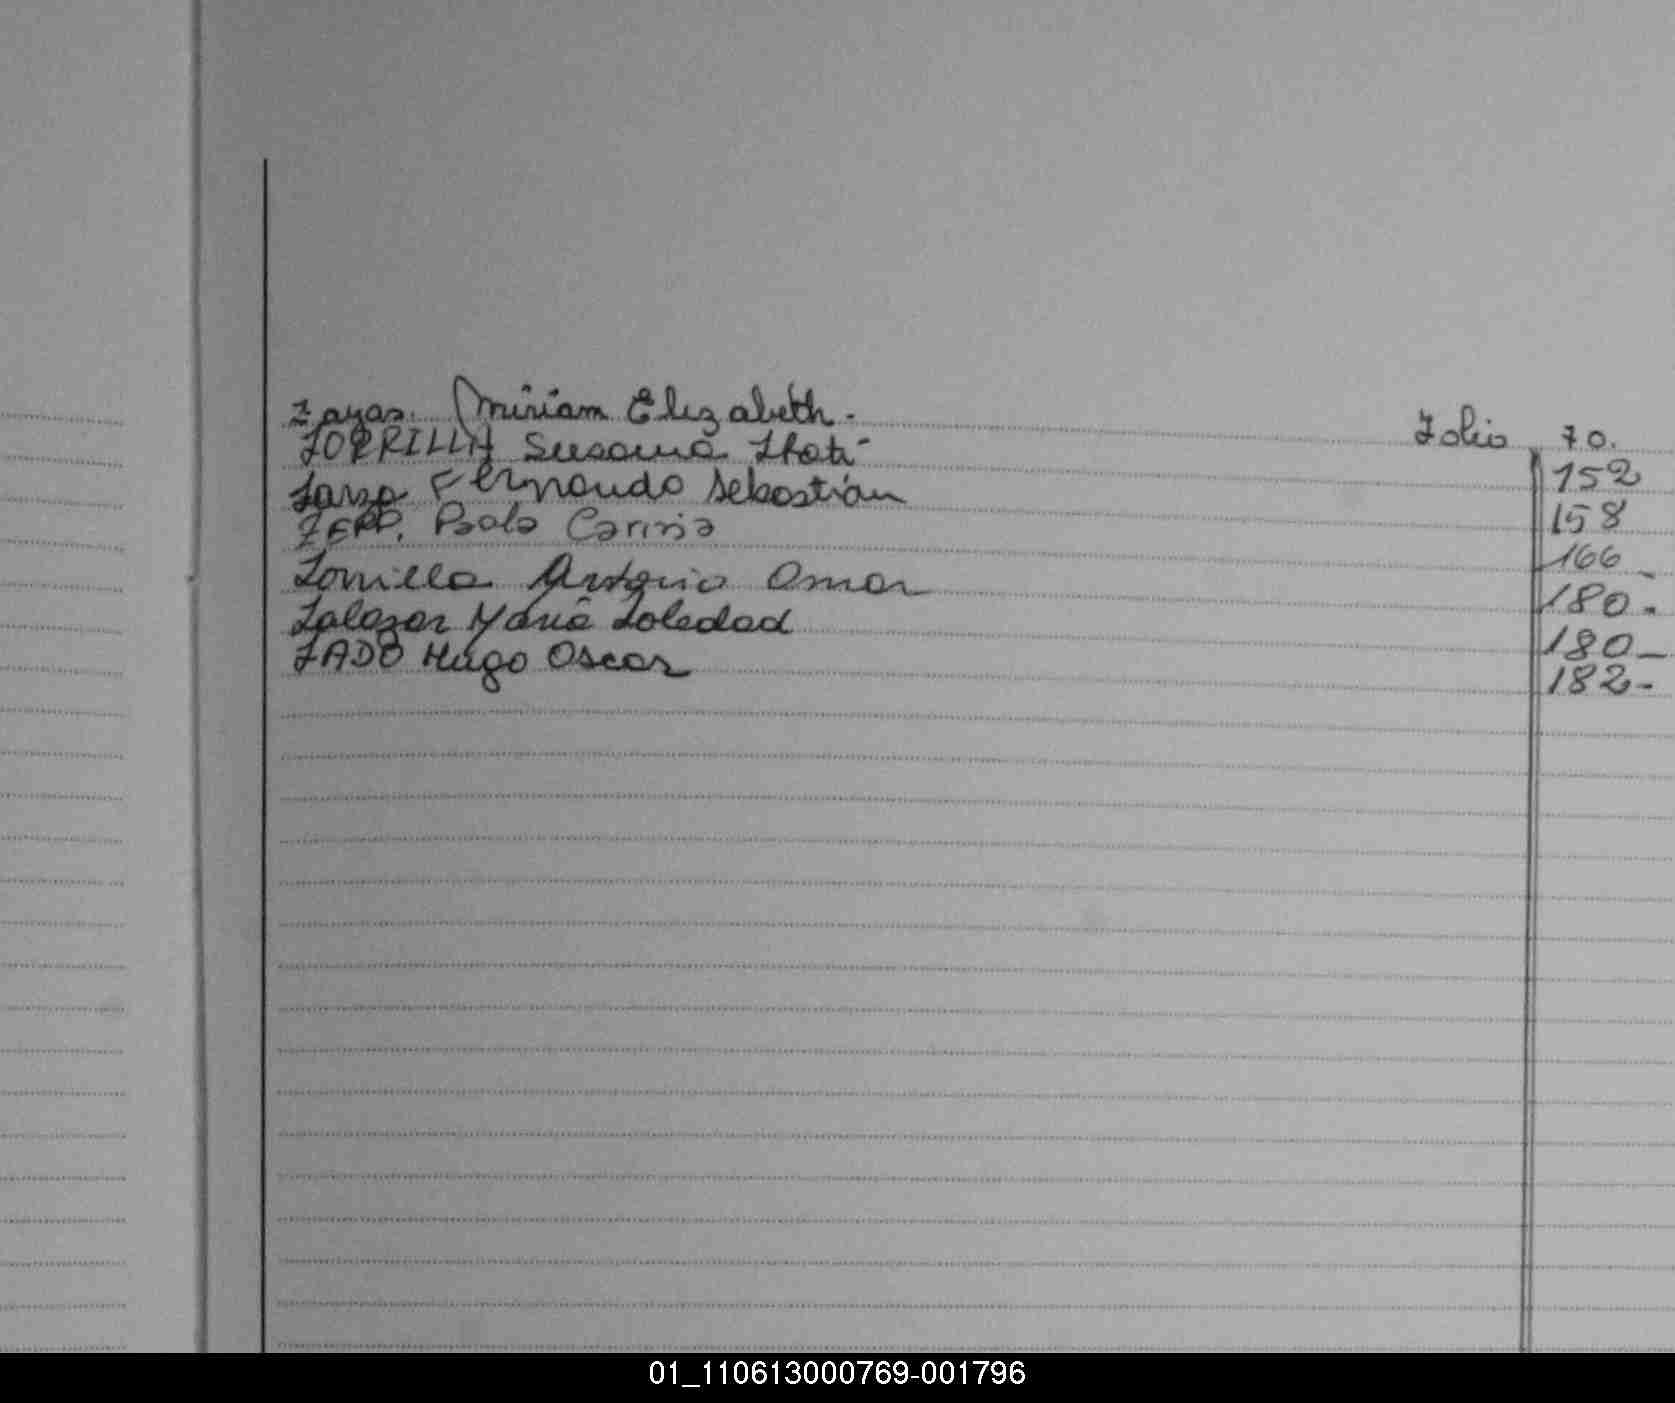 Zayas. Miriam Elizabeth. Folio 70.
ZORRILLA Susana Itatí 152
Zarza Fernando Sebastián 158
ZEPP. Paola Carina 166
Zorrilla Antonio Omar 180.
Zalazar María Soledad 180
ZADO Hugo Oscar 182-
01_110613000769-001796